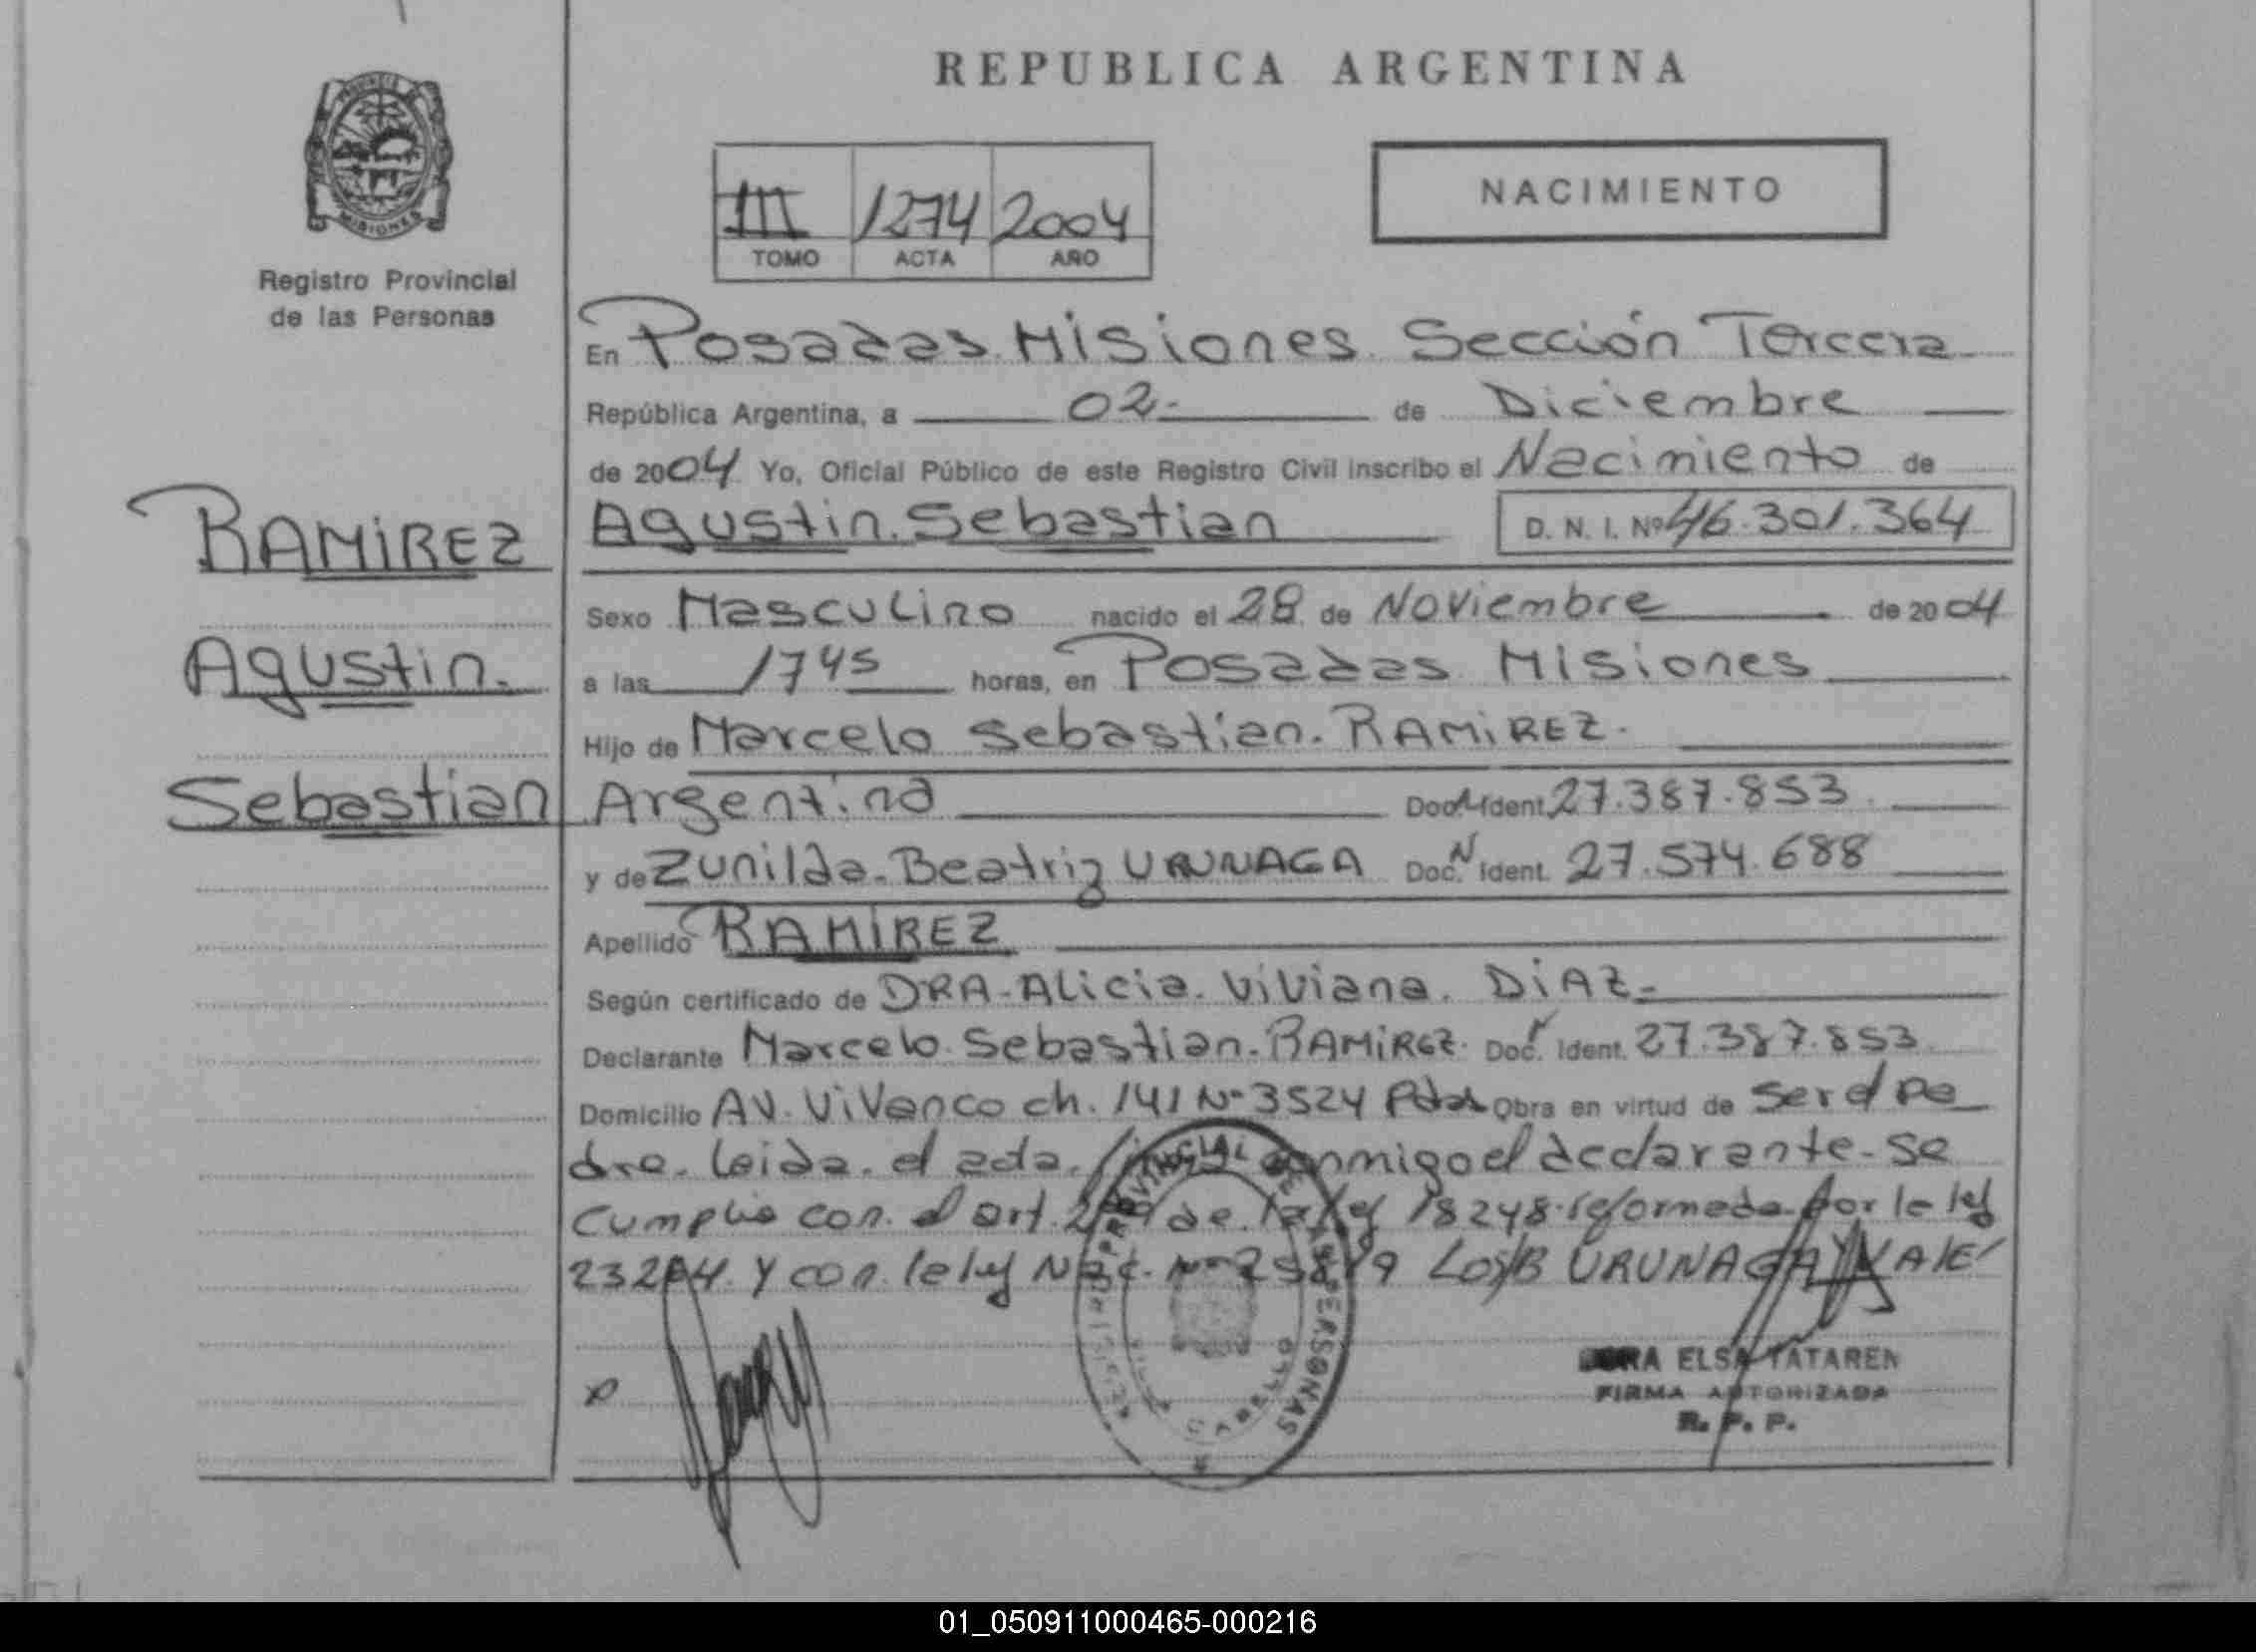 REPUBLICA ARGENTINA
PROVINCIA DE
MISIONES
Registro Provincial
de las Personas
III 1274 2004
TOMO ACTA AÑO
NACIMIENTO
En Posadas Misiones Sección Tercera
República Argentina, a 02 de Diciembre
de 2004 Yo, Oficial Público de este Registro Civil inscribo el Nacimiento de
RAMIREZ
Agustin
Sebastian
Agustin Sebastian D. N. I. Nº 46.301.364
Sexo Masculino nacido el 28 de Noviembre de 2004
a las 1745 horas, en Posadas Misiones
Hijo de Marcelo Sebastian RAMIREZ
Argentina Doc. Ident. 27.387.853
y de Zunilda Beatriz URUNAGA Doc. N Ident. 27.574.688
Apellido RAMIREZ
Según certificado de DRA. Alicia Viviana DIAZ
Declarante Marcelo Sebastian RAMIREZ Doc. Ident. 27.387.853
Domicilio AV. Vivanco ch. 141 Nº 3524 Pdas Obra en virtud de ser el pa
dre. leida el acta conmigo el declarante. se
Cumplio con el art. de la ley 18248 reformada por la ley
Y con la ley Nac. Nº URUNAGA VALE
PROVINCIAL DE LAS PERSONAS
CABELLO
ELSA TATAREN
FIRMA AUTORIZADA
R. P. P.
01_050911000465-000216